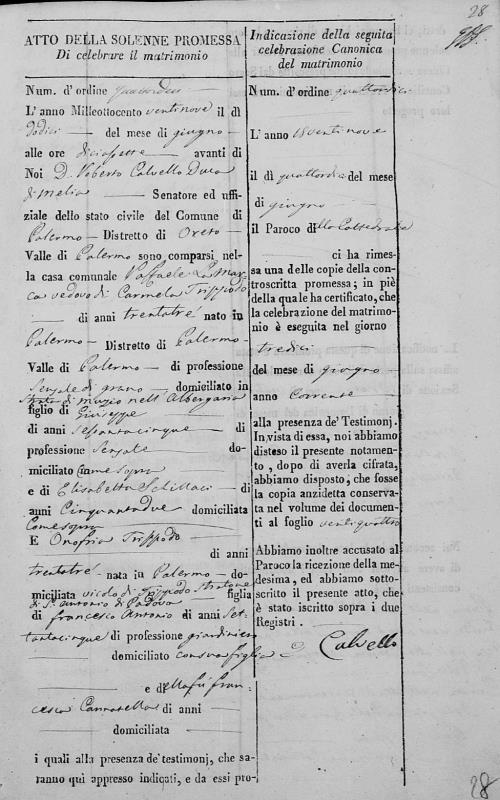 28
ATTO DELLA SOLENNE PROMESSA
Di celebrare il matrimonio
Num. d'ordine quattordici
L'anno Milleottocento ventinove il dì
dodici del mese di giugno
alle ore diciassette avanti di
Noi D. Roberto Calvello Duca
di Melia Senatore ed uffi-
ziale dello stato civile del Comune di
Palermo Distretto di Oreto
Valle di Palermo sono comparsi nel-
la casa comunale Raffaele La Mar-
ca vedovo di Carmela Trippodo
di anni trentatre nato in
Palermo Distretto di Palermo
Valle di Palermo di professione
Sensale di grano domiciliato in
Strada di mezzo nell'Albergaria
figlio di Giuseppe
di anni Sessantacinque di
professione Sensale do-
miciliato Come sopra
e di Elisabetta di
anni Cinquantadue domiciliata
Come sopra
E Onofria Trippodo
di anni
trentatre nata in Palermo do-
miciliata vicolo di Trippodo
di S. Antonio di Padova figlia
di Francesco Antonio di anni Set-
tantacinque di professione giardiniero
domiciliato con sua figlia
e della fù Fran-
cesca di anni
domiciliata
i quali alla presenza de' testimonj, che sa-
ranno qui appresso indicati, e da essi pro-
Indicazione della seguita
celebrazione Canonica
del matrimonio
Num. d'ordine quattordici
L'anno 18ventinove
il dì quattordici del mese
di giugno
il Paroco della Cattedrale
ci ha rimes-
sa una delle copie della con-
troscritta promessa; in piè
della quale ha certificato, che
la celebrazione del matrimo-
nio è eseguita nel giorno
tredici
del mese di giugno
anno Corrente
alla presenza de' Testimonj.
In vista di essa, noi abbiamo
disteso il presente notamen-
to, dopo di averla cifrata,
abbiamo disposto, che fosse
la copia anzidetta conserva-
ta nel volume dei documen-
ti al foglio ventiquattro
Abbiamo inoltre accusato al
Paroco la ricezione della me-
desima, ed abbiamo sotto-
scritto il presente atto, che
è stato iscritto sopra i due
Registri.
Calvello
28